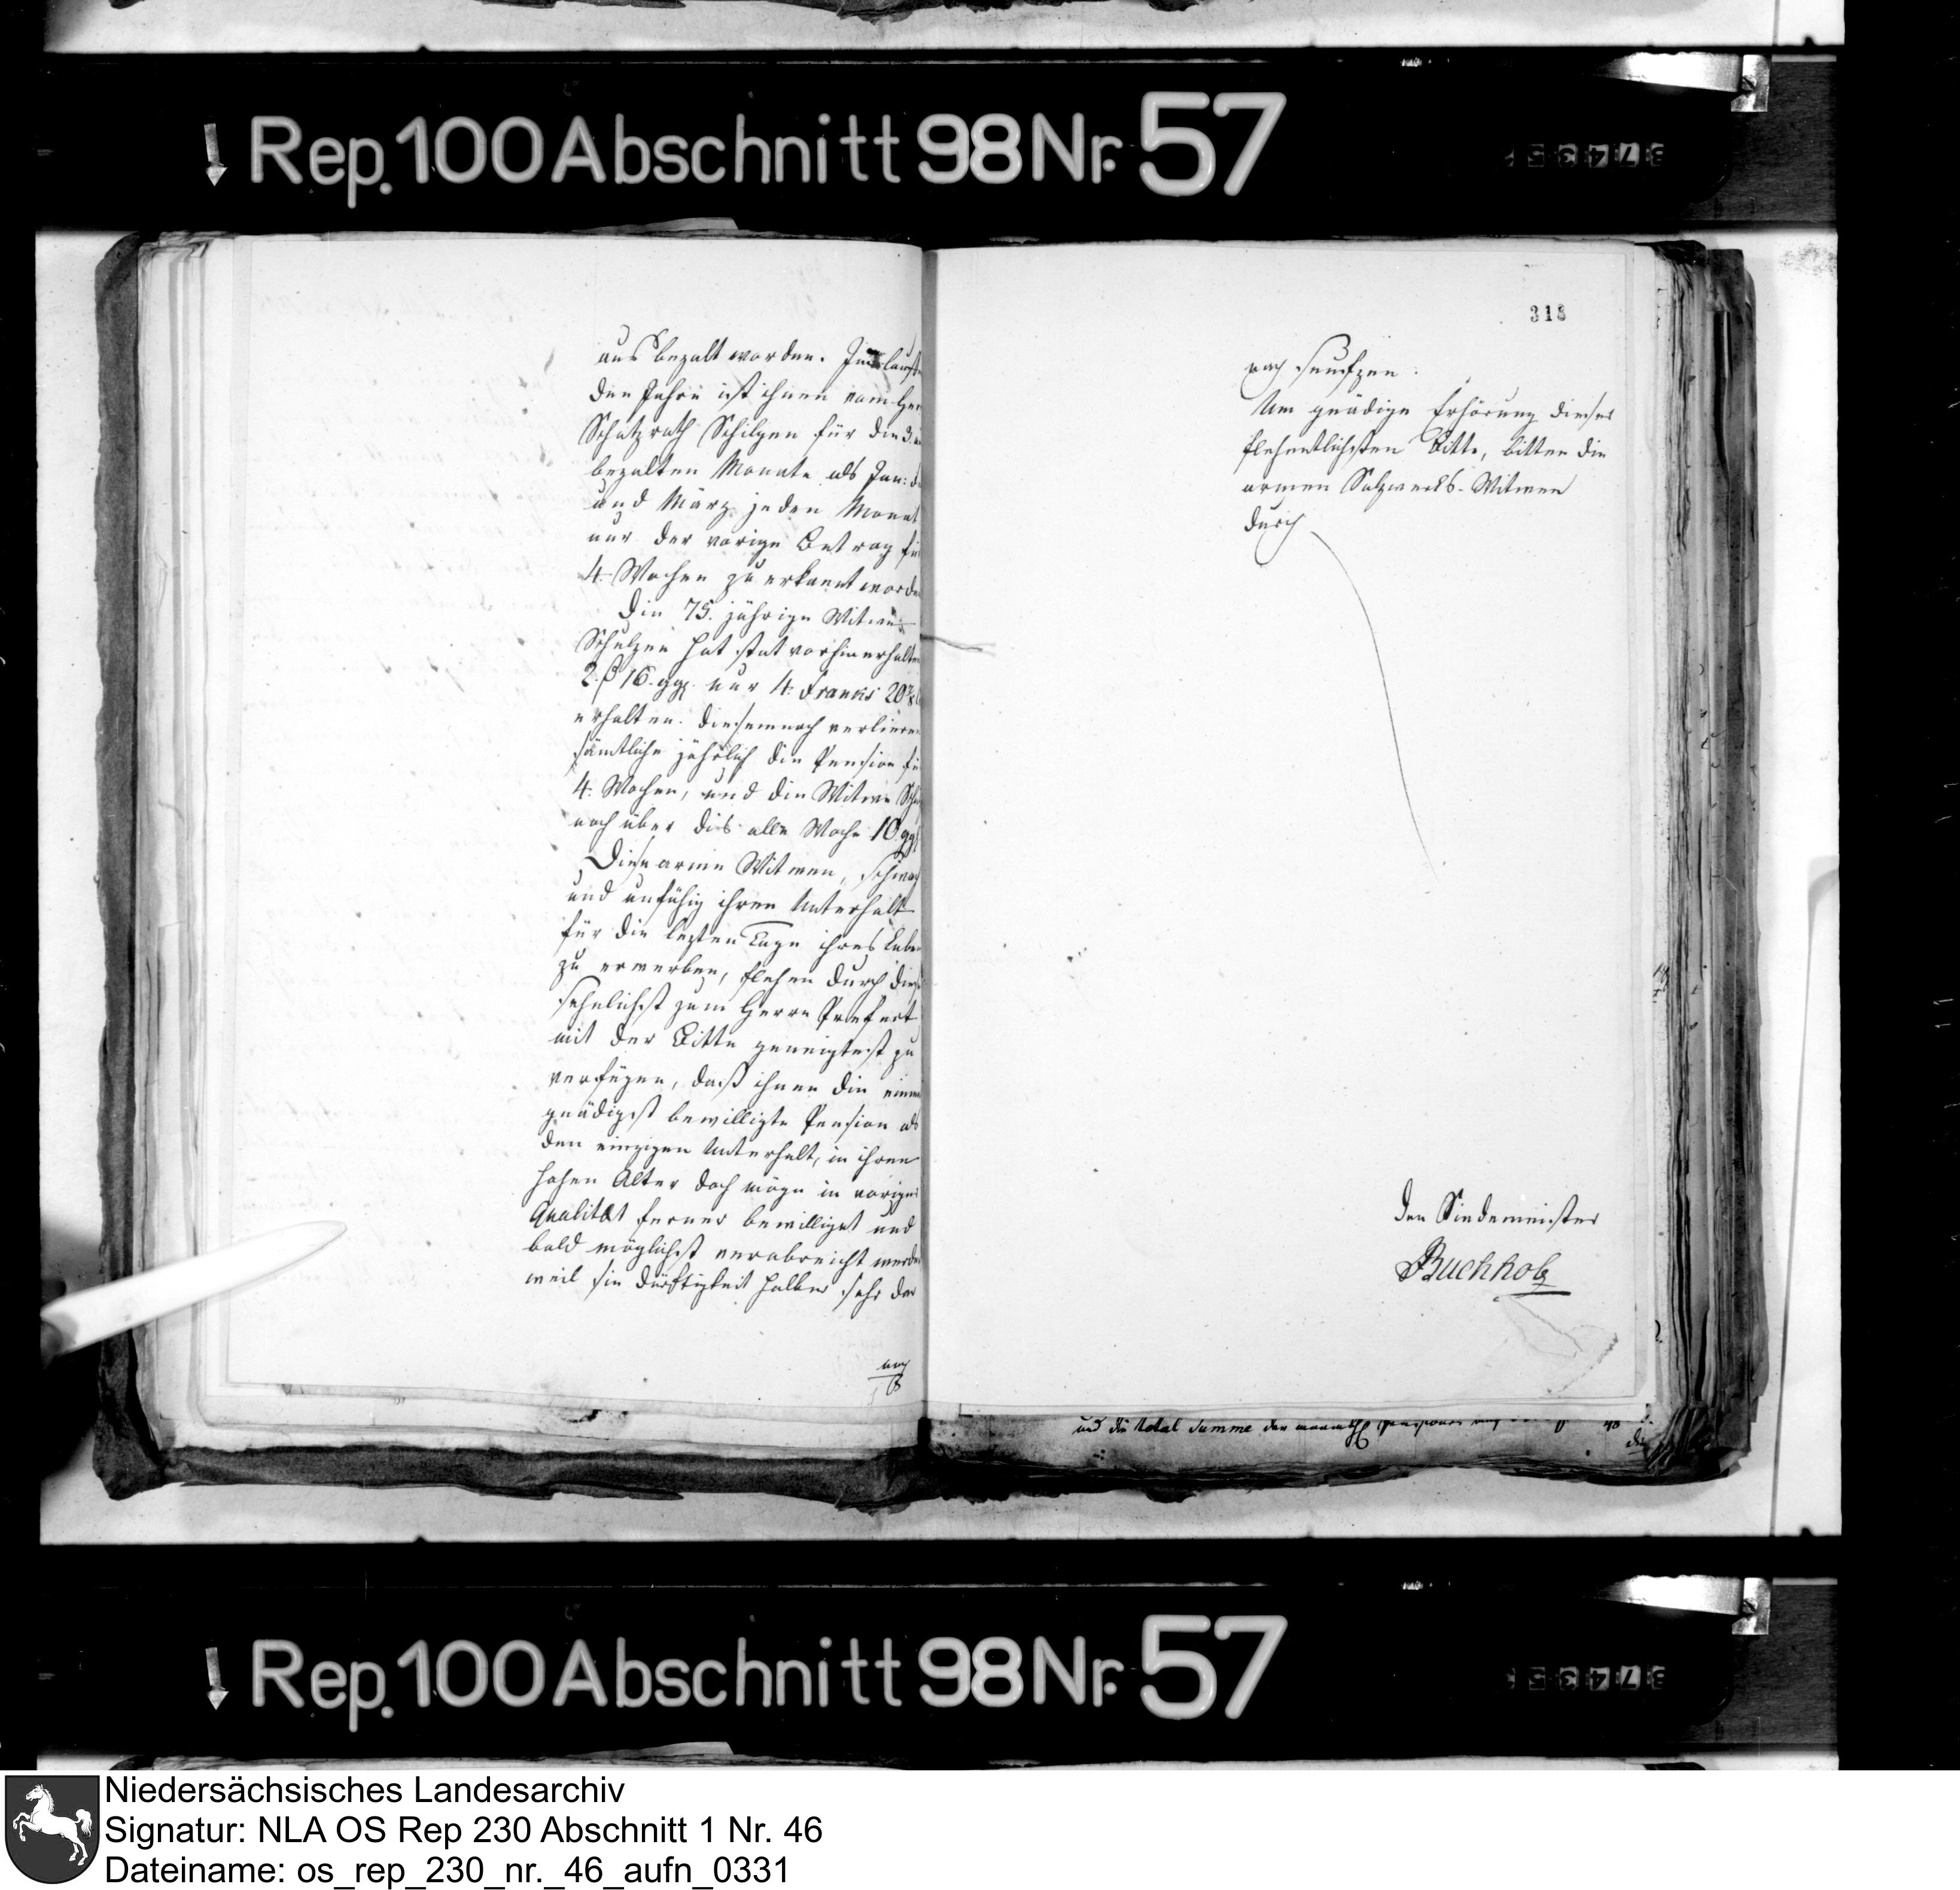 Rep. 100 Abschnitt 98 Nr. 57
aus bezalt worden. Im lauf
den Jahre ist ihnen vom Her
Schatzrath Schilgen für die 3.
bezalten Monate als Jan:
und März jeden Monat
nur der vorige Betrag für
4. Wochen zu erkannt worde
Die 75. jährige Witwe
Schulzen hat stat vorhin erhalten
2. 16. ggl. nur 4. Franks 20
erhalten. Diesemnach verlieren
sämtliche jährlich die Pension für
4. Wochen, und die Witwe Sch
noch über dis alle Woche 10 ggl
Diese arme Witwen, schwach
und unfähig ihren Unterhalt
für die lezten Tage ihres Leben
zu erwerben, flehen durch dies
sehnlichst zum Herrn Prefect
mit der Bitte geneigtest zu
verfügen, daß ihnen die einm
gnädigst bewilligte Pension als
den einzigen Unterhalt, in ihren
hohen Alter doch möge in voriger
Qualität ferner bewilliget und
bald möglichst verabreicht werde
weil sie Dürftigkeit halber sehr dar
nach
318
nach seufzen.
Um gnädige Erhörung dieser
flehentlichsten Bitte, bitten die
armen Salzwerks-Witwen
durch
den Siedemeister
Buchholz
und die total Summe der monatl
Rep. 100 Abschnitt 98 Nr. 57
Niedersächsisches Landesarchiv
Signatur: NLA OS Rep 230 Abschnitt 1 Nr. 46
Dateiname: os_rep_230_nr._46_aufn_0331